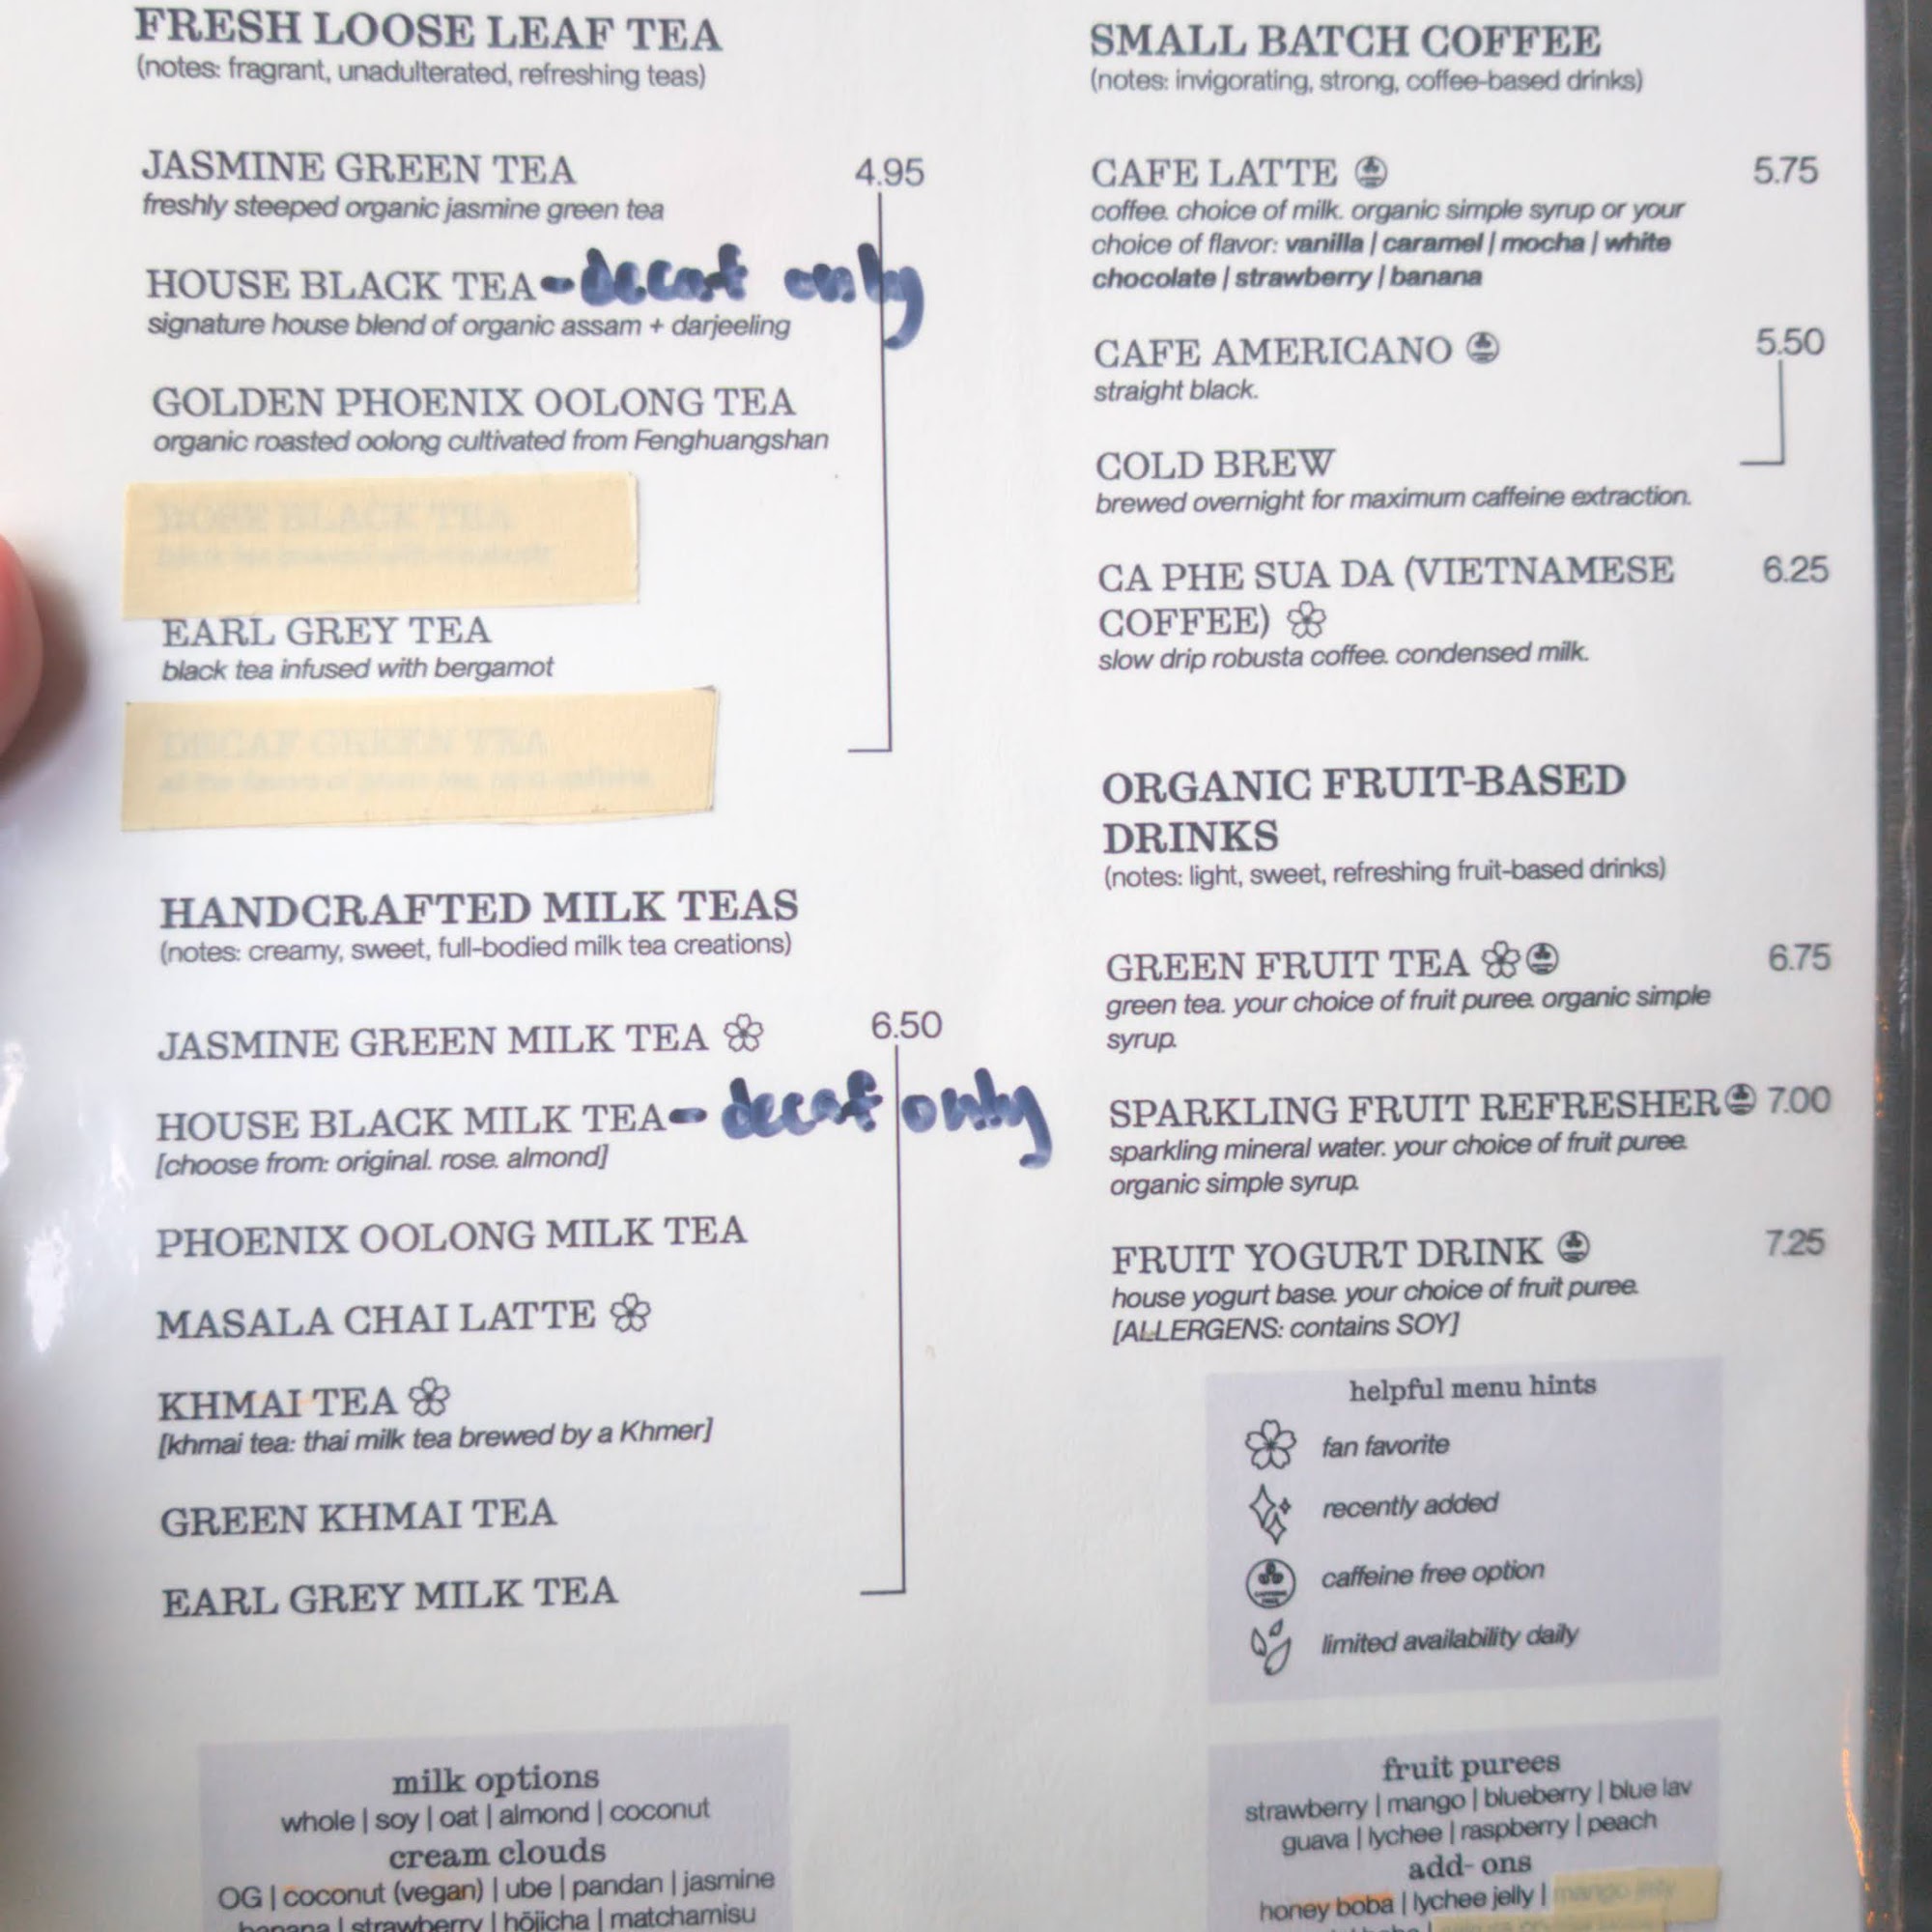 FRESH LOOSE LEAF TEA
(notes: fragrant, unadulterated, refreshing teas)
JASMINE GREEN TEA 4.95
freshly steeped organic jasmine green tea
HOUSE BLACK TEA - decaf only
signature house blend of organic assam + darjeeling
GOLDEN PHOENIX OOLONG TEA
organic roasted oolong cultivated from Fenghuangshan
ROSE BLACK TEA
EARL GREY TEA
black tea infused with bergamot
DECAF GREEN TEA
HANDCRAFTED MILK TEAS
(notes: creamy, sweet, full-bodied milk tea creations)
JASMINE GREEN MILK TEA 6.50
HOUSE BLACK MILK TEA - decaf only
[choose from: original. rose. almond]
PHOENIX OOLONG MILK TEA
MASALA CHAI LATTE
KHMAI TEA
[khmai tea: thai milk tea brewed by a Khmer]
GREEN KHMAI TEA
EARL GREY MILK TEA
milk options
whole | soy | oat | almond | coconut
cream clouds
OG | coconut (vegan) | ube | pandan | jasmine
banana | strawberry | hōjicha | matchamisu
SMALL BATCH COFFEE
(notes: invigorating, strong, coffee-based drinks)
CAFE LATTE 5.75
coffee. choice of milk. organic simple syrup or your
choice of flavor: vanilla | caramel | mocha | white
chocolate | strawberry | banana
CAFE AMERICANO 5.50
straight black.
COLD BREW
brewed overnight for maximum caffeine extraction.
CA PHE SUA DA (VIETNAMESE 6.25
COFFEE)
slow drip robusta coffee. condensed milk.
ORGANIC FRUIT-BASED
DRINKS
(notes: light, sweet, refreshing fruit-based drinks)
GREEN FRUIT TEA 6.75
green tea. your choice of fruit puree. organic simple
syrup.
SPARKLING FRUIT REFRESHER 7.00
sparkling mineral water. your choice of fruit puree.
organic simple syrup.
FRUIT YOGURT DRINK 7.25
house yogurt base. your choice of fruit puree.
[ALLERGENS: contains SOY]
helpful menu hints
fan favorite
recently added
caffeine free option
limited availability daily
fruit purees
strawberry | mango | blueberry | blue lav
guava | lychee | raspberry | peach
add- ons
honey boba | lychee jelly | mango jelly